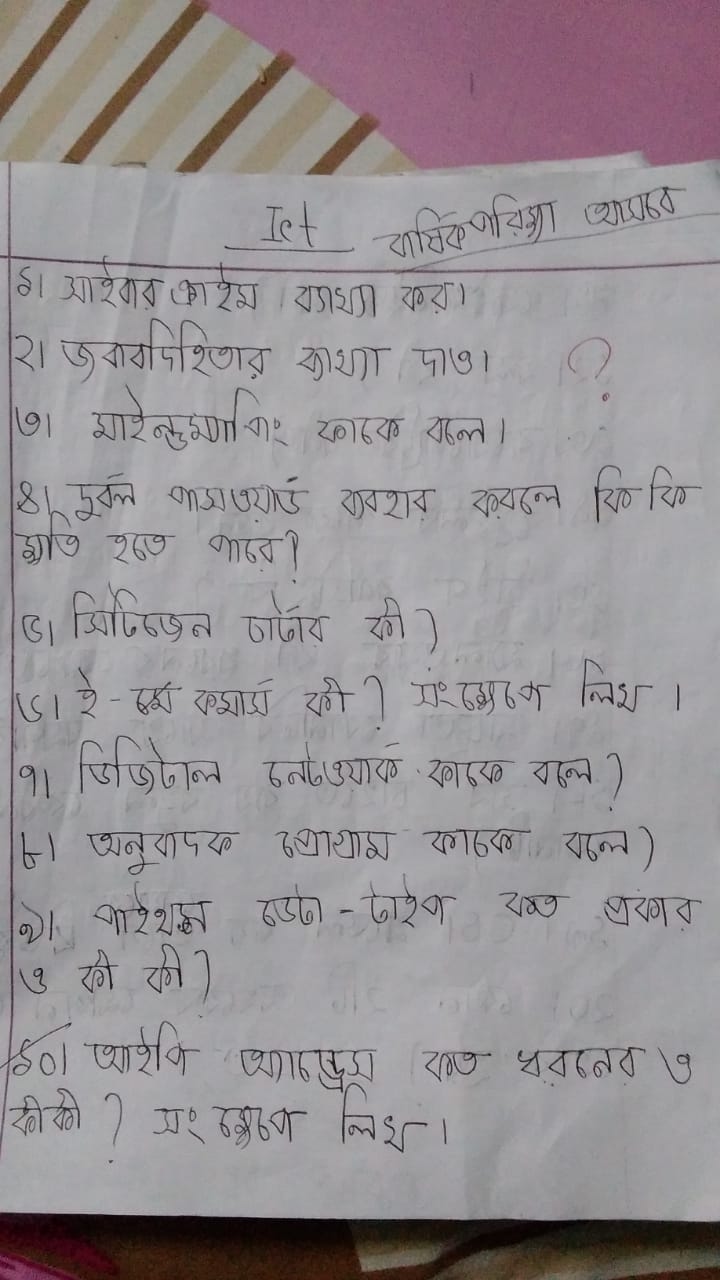 Ict বার্ষিক পরিক্ষা আসবে
১। সাইবার ক্রাইম ব্যাখ্যা কর।
২। জবাবদিহিতার ব্যাখ্যা দাও। ?
৩। মাইন্ডম্যাপিং কাকে বলে।
৪। দুর্বল পাসওয়ার্ড ব্যবহার করলে কি কি
ক্ষতি হতে পারে?
৫। সিটিজেন চার্টার কী?
৬। ই - কমার্স কী? সংক্ষেপে লিখ।
৭। ডিজিটাল নেটওয়ার্ক কাকে বলে?
৮। অনুবাদক প্রোগ্রাম কাকে বলে?
৯। পাইথন ডেটা - টাইপ কত প্রকার
ও কী কী?
১০। আইপি অ্যাড্রেস কত ধরনের ও
কীকী? সংক্ষেপে লিখ।